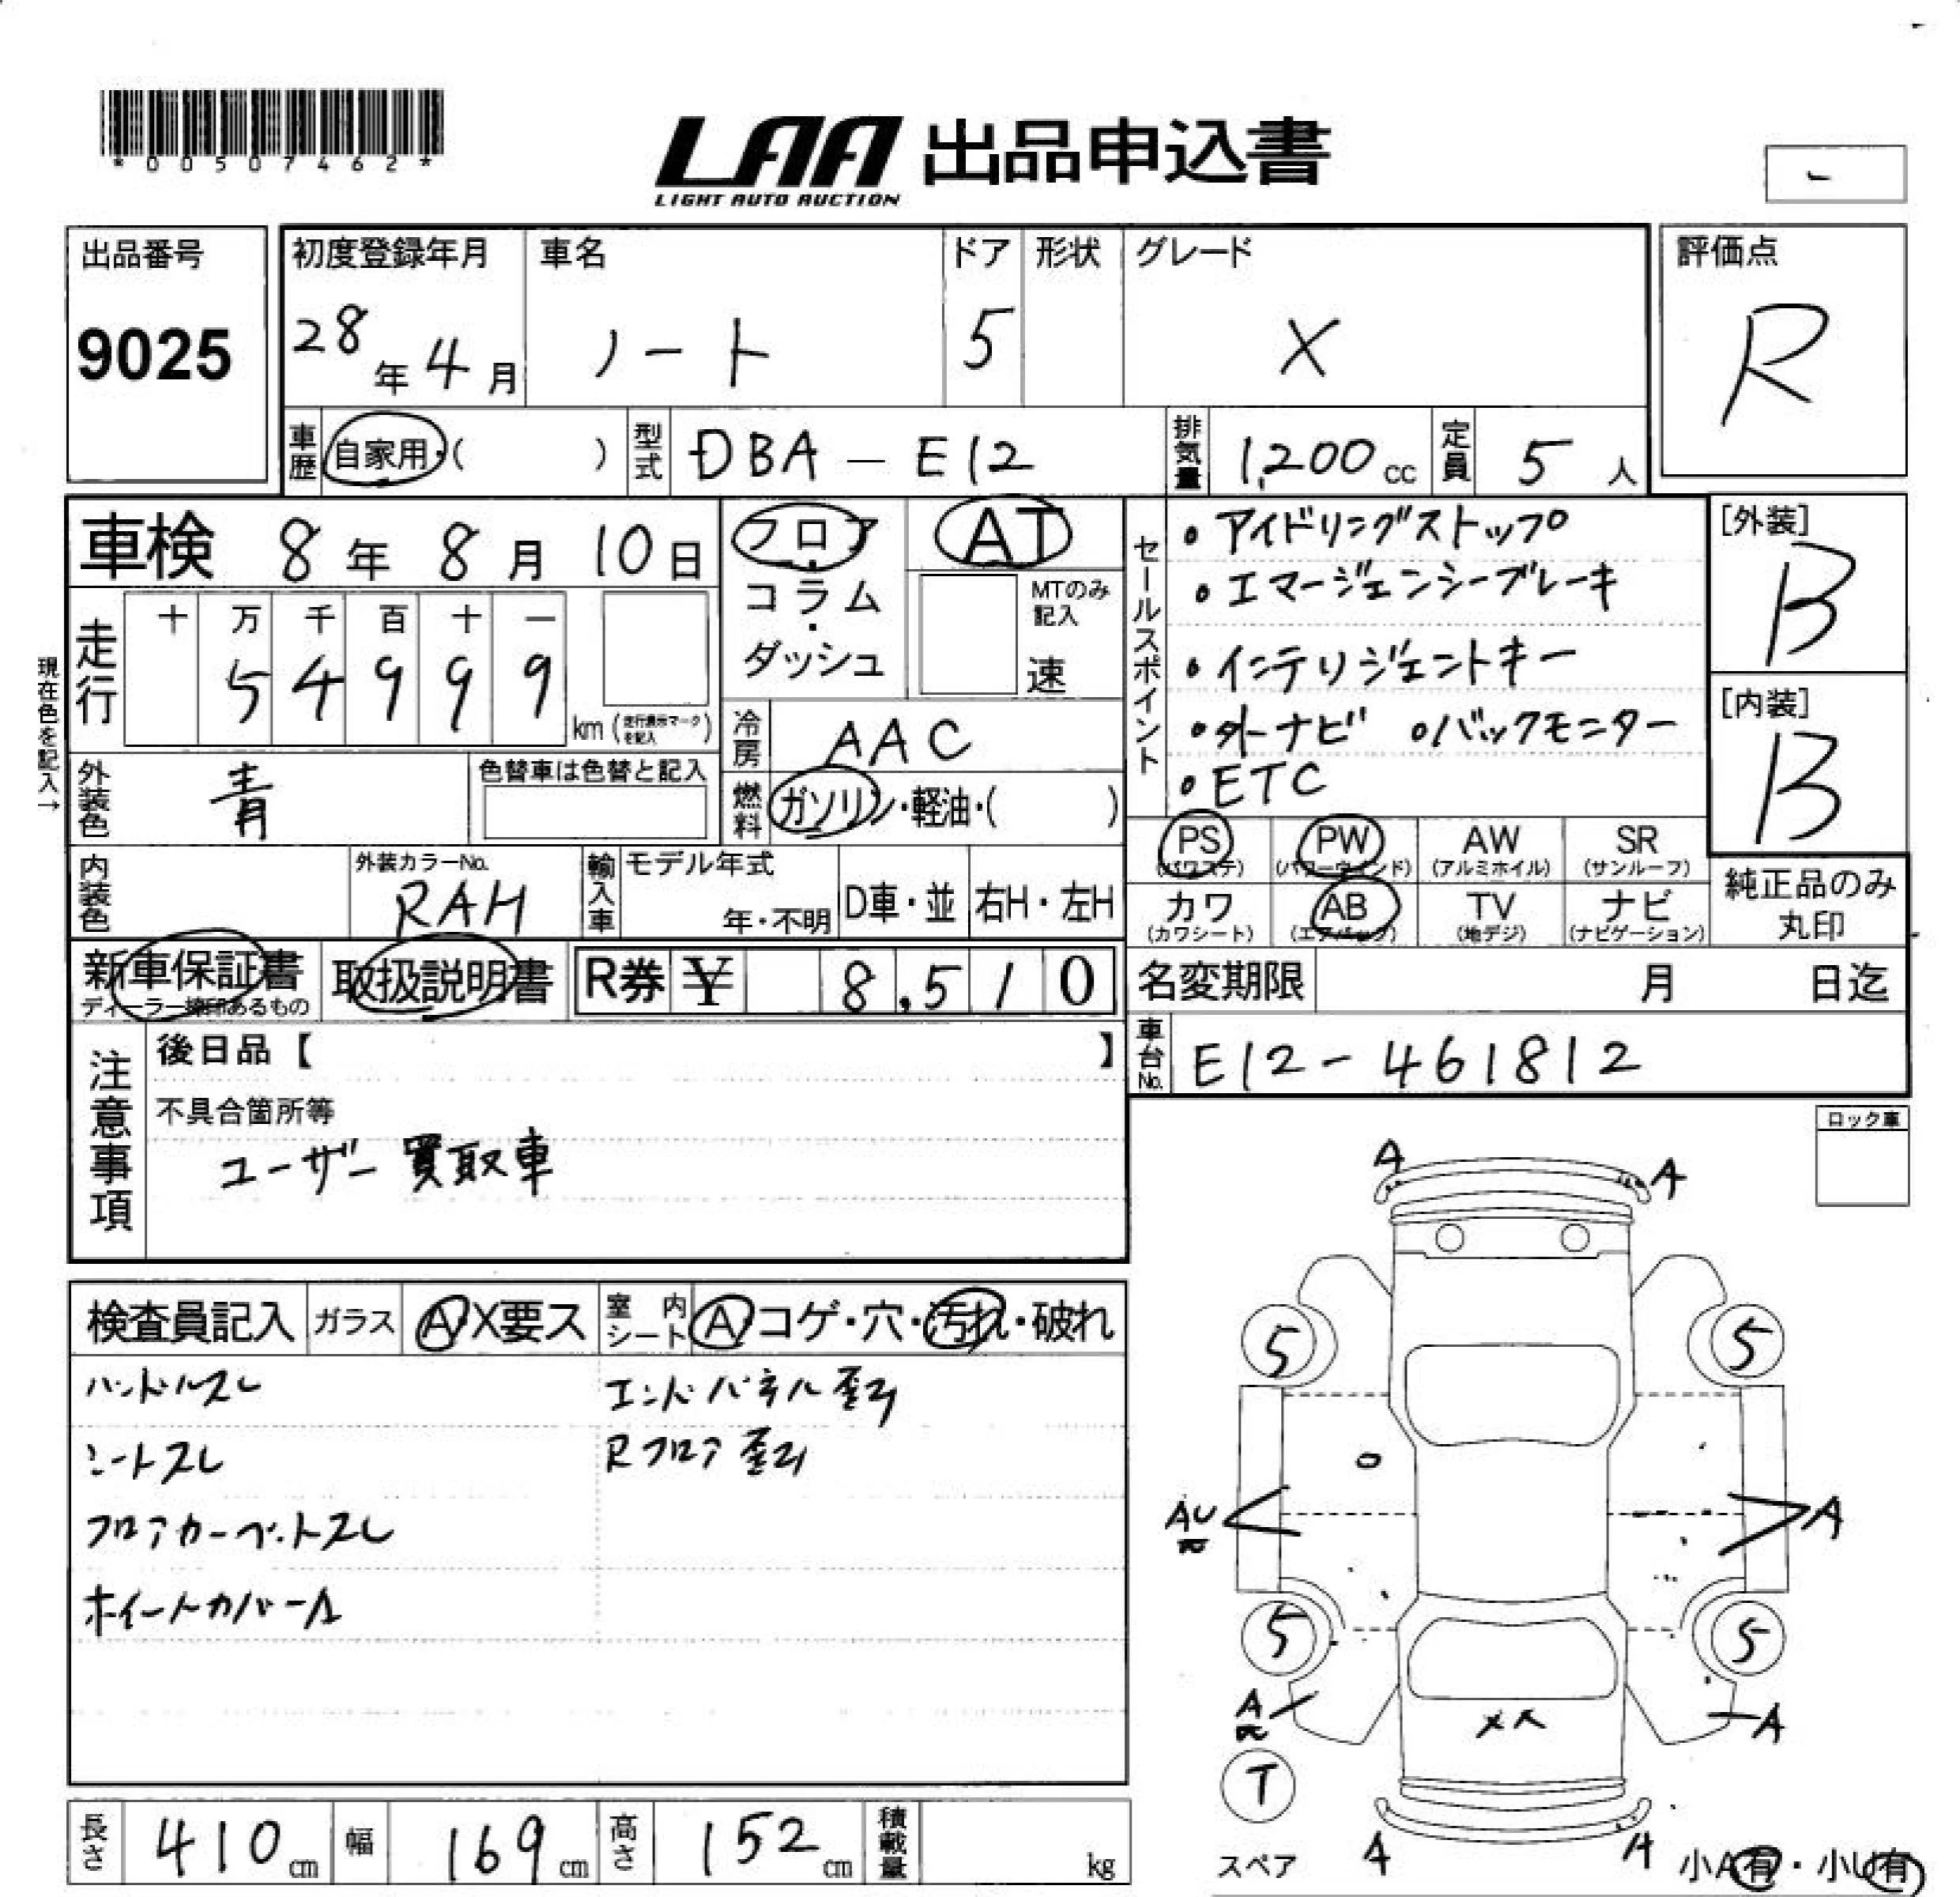 *00507462*
LAA 出品申込書
LIGHT AUTO AUCTION
出品番号 初度登録年月 車名 ドア 形状 グレード 評価点
9025 28年4月 ノート 5 X R
車歴 自家用・( ) 型式 DBA-E12 排気量 1,200cc 定員 5人
車検 8年8月10日 フロア・コラム・ダッシュ AT MTのみ記入 速
走行 十万千百十一
54999 km(走行表示マークを記入)
現在色を記入→
外装色 青 色替車は色替と記入
冷房 AAC
燃料 ガソリン・軽油・( )
内装色 外装カラーNo. RAH 輸入車 モデル年式 年・不明 D車・並 右H・左H
セールスポイント
・アイドリングストップ
・エマージェンシーブレーキ
・インテリジェントキー
・外ナビ ・バックモニター
・ETC
[外装] B
[内装] B
PS(パワステ) PW(パワーウインド) AW(アルミホイル) SR(サンルーフ)
カワ(カワシート) AB(エアバック) TV(地デジ) ナビ(ナビゲーション)
純正品のみ丸印
新車保証書 ディーラー捺印あるもの 取扱説明書 R券 ¥ 8,510
名変期限 月 日迄
車台No. E12-461812
注意事項
後日品【 】
不具合箇所等
ユーザー買取車
ロック車
検査員記入 ガラス A・X要ス 室内シート A コゲ・穴・汚れ・破れ
ハンドルスレ エンドパネル歪み
シートスレ Rフロア歪み
フロアカーペットスレ
ホイールカバーA
A A
5 5
AU A
5 5
A A
XX
T
スペア A A 小A有・小U有
長さ 410cm 幅 169cm 高さ 152cm 積載量 kg